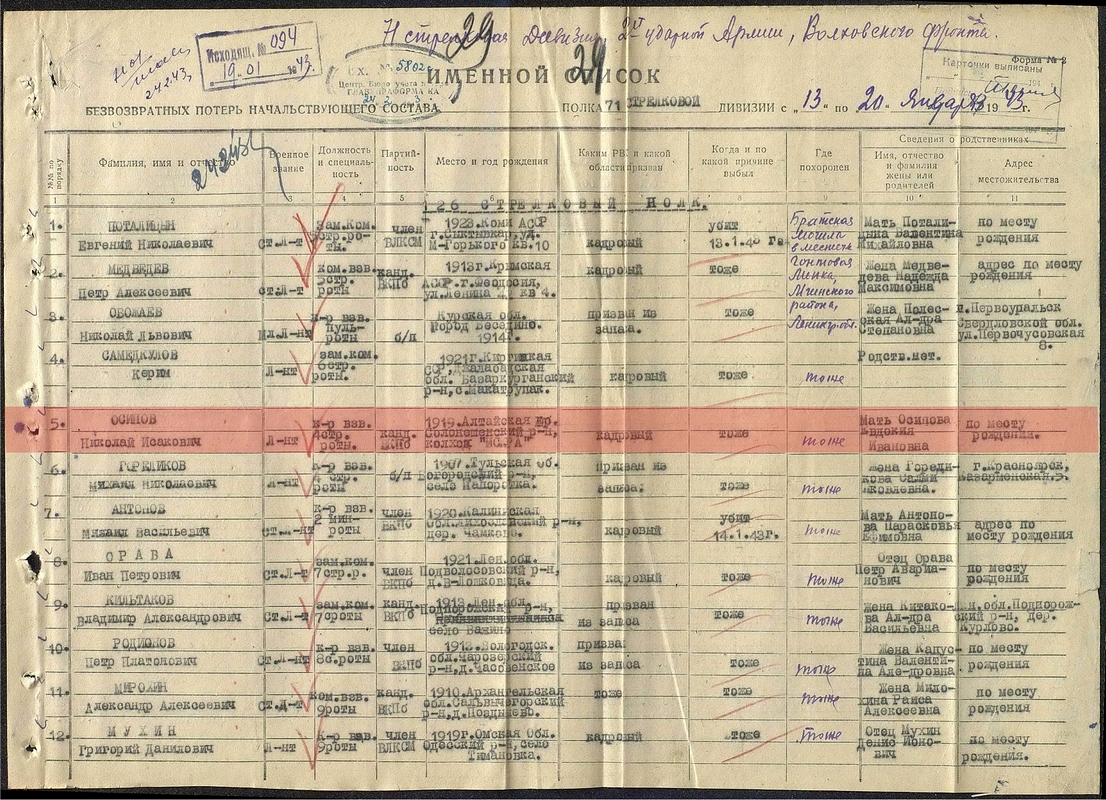 71 стрелковая Дивизия, 2й ударной Армии, Волховского фронта.
Исходящ. № 094
19.01 43.
24.2.43,
Вх. № 5802
Форма № 2
Карточки выписаны
ИМЕННОЙ СПИСОК
БЕЗВОЗВРАТНЫХ ПОТЕРЬ НАЧАЛЬСТВУЮЩЕГО СОСТАВА
ПОЛКА 71 СТРЕЛКОВОЙ ДИВИЗИИ с „13" по 20 Января 1943 г.
№№ по порядку
Фамилия, имя и отчество
Военное звание
Должность и специальность
Партийность
Место и год рождения
Каким РВК и какой области призван
Когда и по какой причине выбыл
Где похоронен
Сведения о родственниках
Имя, отчество и фамилия жены или родителей
Адрес местожительства
1 2 3 4 5 6 7 8 9 10 11
126 СТРЕЛКОВЫЙ ПОЛК.
1. ПОТАЛИЦЫН
Евгений Николаевич
Ст.Л-т
Зам.Ком.
5стр.ро-
ты.
член
ВЛКСМ
1923.Коми АССР
г.Сыктывкар,ул.
М-Горького кв.10
кадровый
убит
13.1.43 г.
Братская
могила
в местечк
Гонтовая
Липка,
Мгинского
района,
Ленингр.обл.
Мать Потали-
цына Валентина
Михайловна
по месту
рождения
2. МЕДВЕДЕВ
Петр Алексеевич
ст.Л-т
ком.взв.
5стр.
роты
канд.
ВКПб
1913г.Крымская
АССР.г.Феодосия,
ул.Ленина кв 4.
кадровый
тоже
Жена Медве-
дева Надежда
Максимовна
адрес по месту
рождения
3. ОБОЖАЕВ
Николай Львович
Мл.Л-нт
к-р взв.
пуль-
роты
б/п
Курская обл.
город Беседино.
1914г.
призван из
запаса.
тоже
Жена Полес-
ская Ал-дра
Степановна
г.Первоуральск
Свердловской обл.
ул.Первочусовская
8.
4. САМЕДКУЛОВ
Керим
Л-нт
зам.ком.
6стр.
роты.
1921г.Киргизкая
ССР,Джалабадская
обл. Базаркурганский
р-н,с.Макатрупак.
кадровый
тоже
тоже
Родств.нет.
5. ОСИПОВ
Николай Исакович
Л-нт
к-р взв.
4стр.
роты.
канд.
ВКПб
1919.Алтайская кр.
Солонешенский р-н,
колхоз "ИСКРА"
кадровый
тоже
тоже
Мать Осипова
Евдокия
Ивановна
по месту
рождения.
6. ГОРЕЛИКОВ
Михаил Николаевич
Л-нт
к-р взв.
4 стр.
роты
б/п
1907.Тульская об.
Богородский р-н,
село Папоротка.
Призван из
запаса.
тоже
тоже
жена Горели-
кова
Яковлевна.
г.Красноярск,
Казарменная.5.
7. АНТОНОВ
Михаил Васильевич
Ст.Л-нт
к-р взв.
мин-
роты
член
ВКПб
1920.Калининская
обл.Лихославский р-н,
дер. Чамково.
кадровый
убит
14.1.43г.
тоже
Мать Антоно-
ва Парасковья
Ефимовна
адрес по
месту рождения
8. ОРАВА
Иван Петрович
Ст.Л-т
зам.ком.
7стр.р.
член
ВКПб
1921.Лен.обл.
Подволосовский р-н,
кадровый
тоже
тоже
Отец Орава
Петр Авериа-
нович
по месту
рождения
9. КИЛЬТАКОВ
Владимир Александрович
Ст.Л-т
зам.ком.
7сроты
канд.
ВКПб
1913.Лен.обл.
Подпорожский р-н,
село Важино
призван
из запаса
тоже
тоже
Жена Китако-
ва Ал-дра
Васильевна
Лен.обл.Подпорож-
ский р-н, дер.
Курлово.
10. РОДИОНОВ
Петр Платонович
Ст.Л-нт
к-р взв.
8с.роты
член
ВКПб
1912.Вологодск.
обл.Чарозерский
р-н,
призван
из запаса
тоже
тоже
Жена Капус-
тина Валенти-
на Але-дровна
по месту
рождения
11. МИРОХИН
Александр Алексеевич
Ст.Л-т
ком.взв.
9роты
канд.
ВКПб
1910.Архангельская
обл.Сольвычегорский
р-н,д.Поздышево.
тоже
тоже
тоже
Жена Мило-
хина Раиса
Алексеевна
по месту
рождения
12. МУХИН
Григорий Данилович
Л-нт
к-р взв.
9роты
член
ВЛКСМ
1919г.Омская Обл.
Одесский р-н,село
Тимановка.
кадровый
тоже
тоже
Отец Мухин
Денис Ионо-
вич
по месту
рождения.